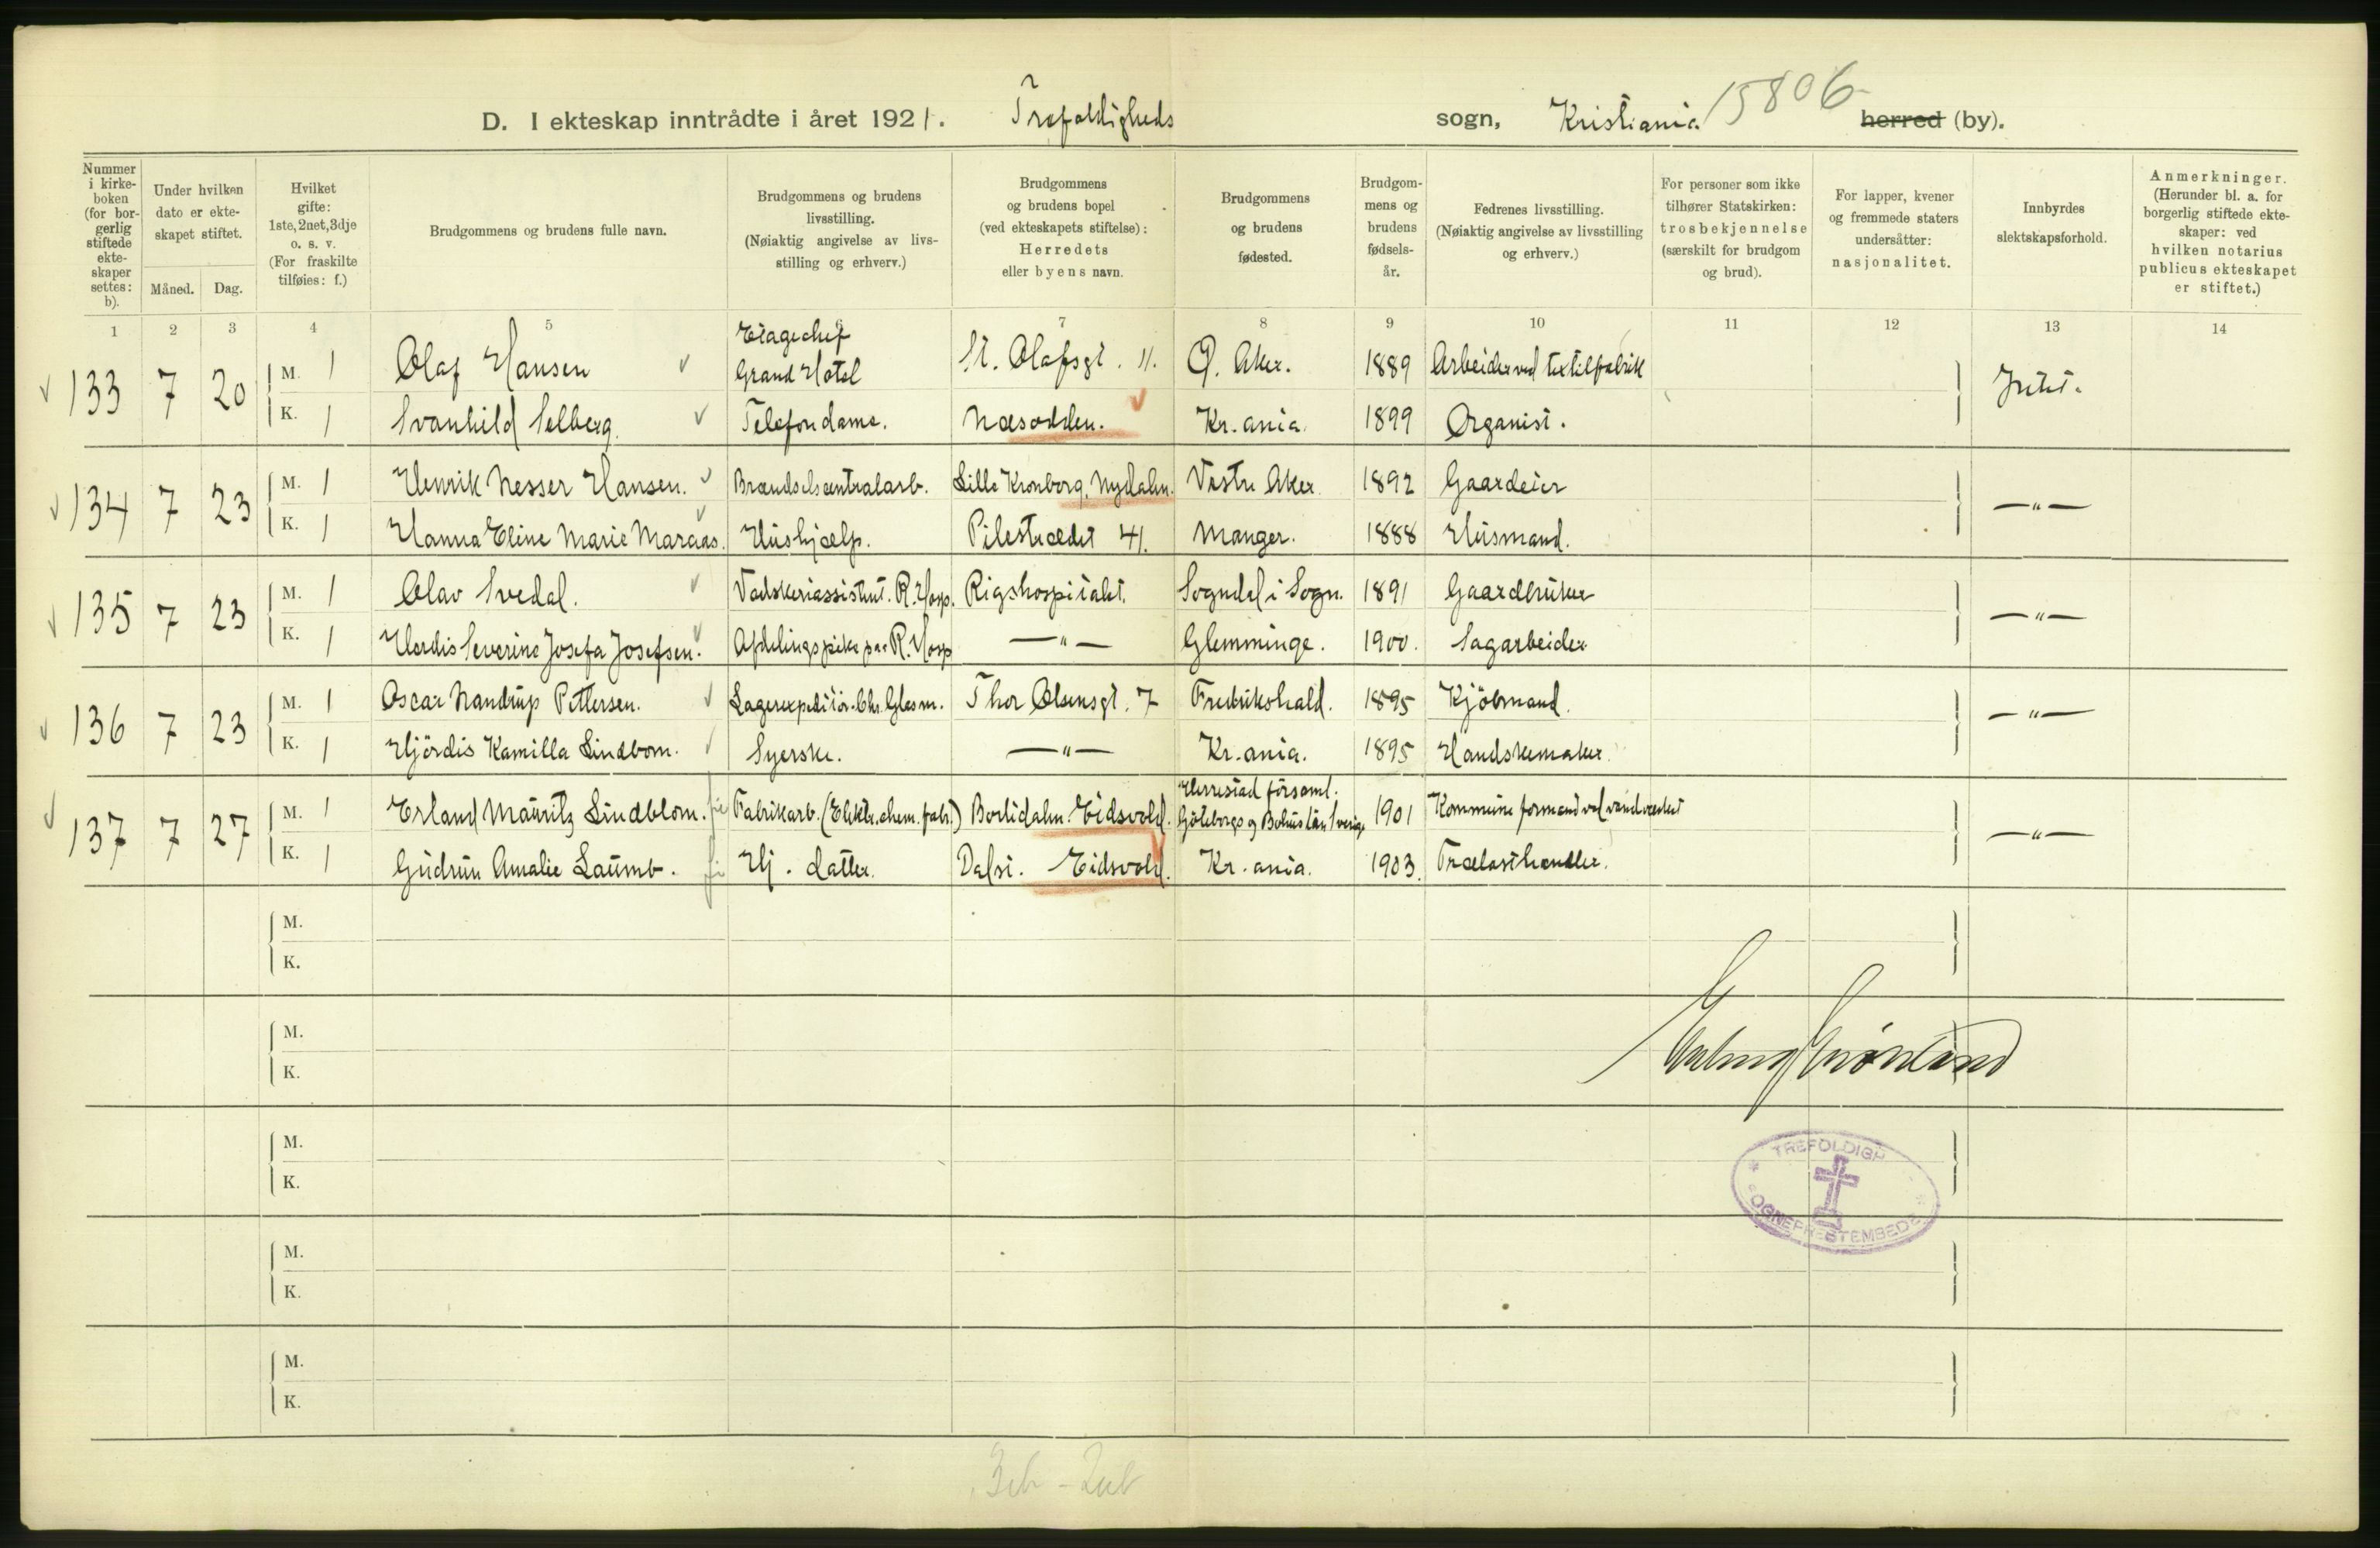 D. I ekteskap inntrådte i året 1921. Trefoldigheds sogn, Kristiania 15806 herred (by).
Nummer i kirkeboken (for borgerlig stiftede ekteskaper settes: b).
Under hvilken dato er ekteskapet stiftet.
Måned. Dag.
Hvilket gifte: 1ste, 2net, 3dje o. s. v. (For fraskilte tilføies: f.)
Brudgommens og brudens fulle navn.
Brudgommens og brudens livsstilling. (Nøiaktig angivelse av livsstilling og erhverv.)
Brudgommens og brudens bopel (ved ekteskapets stiftelse): Herredets eller byens navn.
Brudgommens og brudens fødested.
Brudgommens og brudens fødselsår.
Fedrenes livsstilling. (Nøiaktig angivelse av livsstilling og erhverv.)
For personer som ikke tilhører Statskirken: trosbekjennelse (særskilt for brudgom og brud).
For lapper, kvener og fremmede staters undersåtter: nasjonalitet.
Innbyrdes slektskapsforhold.
Anmerkninger. (Herunder bl. a. for borgerlig stiftede ekteskaper: ved hvilken notarius publicus ekteskapet er stiftet.)
1 2 3 4 5 6 7 8 9 10 11 12 13 14
133 7 20 M. 1 Olaf Hansen Etagechef Grand Hotel St. Olafsgt. 11. Ø. Aker. 1889 Arbeider ved textilfabrik Intet.
K. 1 Svanhild Selberg. Telefondame. Næsodden. Kr.ania. 1899 Organist.
134 7 23 M. 1 Henrik Nesser Hansen. Brændselscentralarb. Lille Kronborg, Nydalen. Vestre Aker. 1892 Gaardeier —"—
K. 1 Hanna Eline Marie Maraas. Hushjælp. Pilestrædet 41. Manger. 1888 Husmand.
135 7 23 M. 1 Olav Svedal. Vadskeriassistent. R. Hosp. Rigshospitalet. Sogndal i Sogn. 1891 Gaardbruker —"—
K. 1 Herdis Severine Josefa Josefsen. Afdelingspike paa R. Hosp —"— Glemminge. 1900. Sagarbeider
136 7 23 M. 1 Oscar Nandrup Pettersen. Lagerexpeditör. Chr. Glasm. Thor Olsensgt. 7 Fredrikshald. 1895 Kjöbmand. —"—
K. 1 Hjördis Kamilla Lindbom. Syerske. —"— Kr.ania. 1895 Handskemaker.
137 7 27 M. 1 Erland Mauritz Lindblom. Fabrikarb. (Elektr. chem. fabr.) Borlidalen. Eidsvold. Herrestad församl. Göteborgs og Bohus län Sverige 1901 Kommune formand ved vandverket —"—
K. 1 Gudrun Amalie Laumb. Hj. datter. Dalsi. Eidsvold. Kr.ania. 1903. Trælasthandler.
M.
K.
M.
K.
M.
K.
M.
K.
M.
K.
TREFOLDIGH
OGNEPRESTEMBEDE